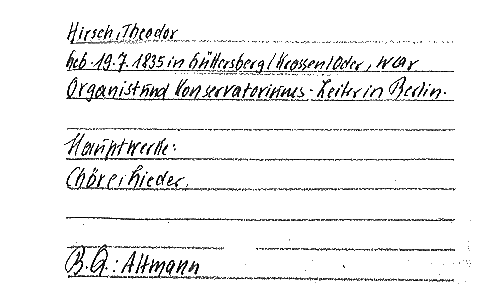 Hirsch, Theodor
Geb. 19.7.1835 in Güttersberg/Krossen/Oder, war
Organist und Konservatoriums-Leiter in Berlin.
Hauptwerke:
Chöre, Lieder.
B.Q.: Altmann